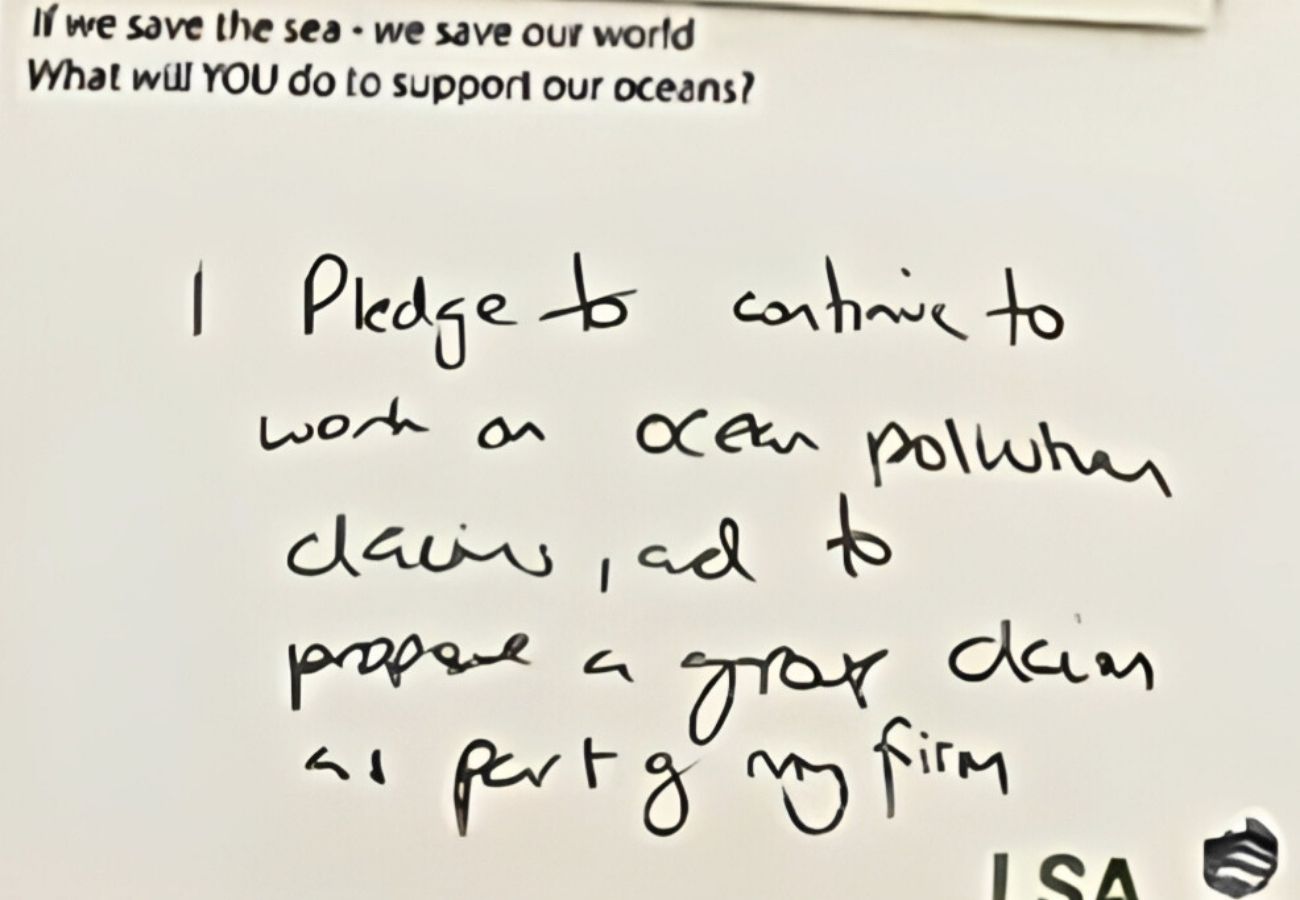 If we save the sea - we save our world
What will YOU do to support our oceans?
I Pledge to continue to
work on ocean pollution
claims, and to
propose a group claim
as part of my firm
LSA